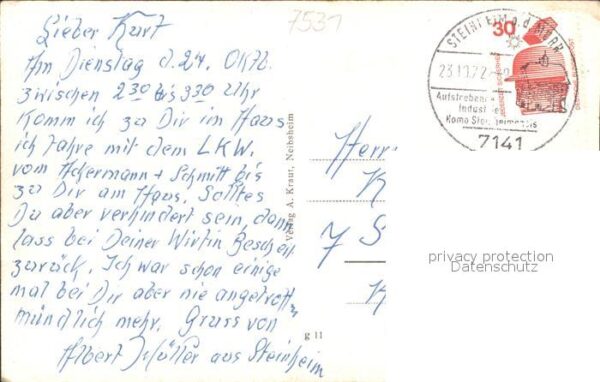 7531
Lieber Kurt
Am Dienstag d. 24. Oktb.
zwischen 2 30 bis 3 30 Uhr
komm ich zu Dir im Haus
ich fahre mit dem LKW.
vom Ackermann + Schmitt bis
zu Dir am Haus. Solltes
Du aber verhindert sein, dann
lass bei Deiner Wirtin Bescheid
zurück. Ich war schon einige
mal bei Dir aber nie angetroffen
mündlich mehr. Gruss von
Albert Müller aus Steinheim
Verlag A. Kraut, Neibsheim
g 11
Herr
K
7 S
K
STEINHEIM a.d. MURR
23.10.72
Aufstrebende
Industrie
Homo Steinheimensis
7141
30
privacy protection
Datenschutz